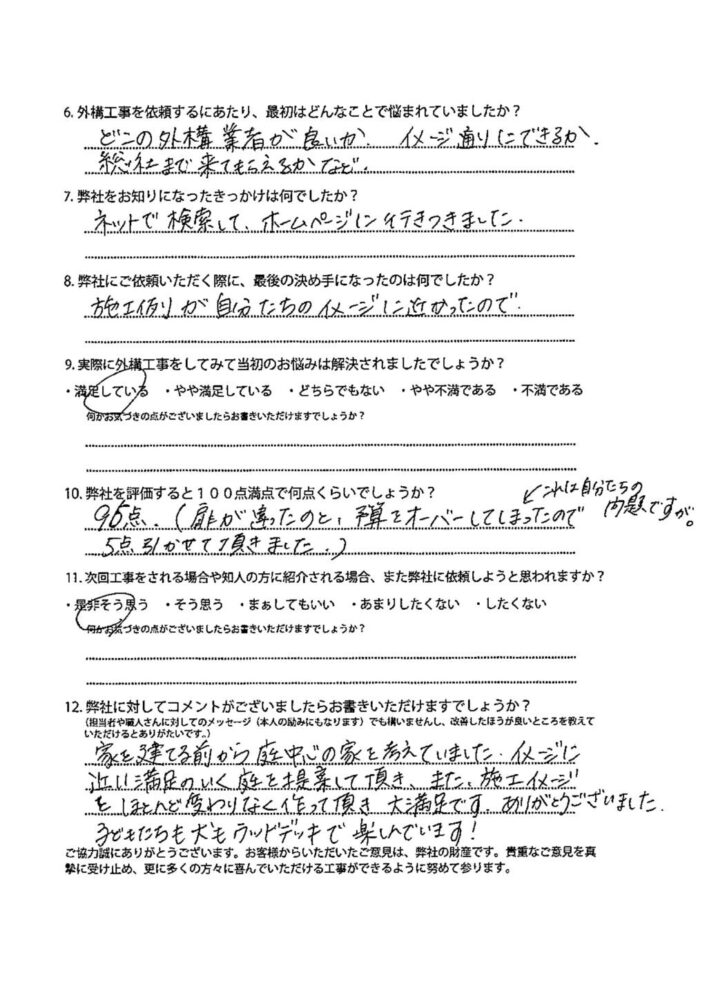 6. 外構工事を依頼するにあたり、最初はどんなことで悩まれていましたか？
どこの外構業者が良いか、イメージ通りにできるか、
総社まで来てもらえるかなど。
7. 弊社をお知りになったきっかけは何でしたか？
ネットで検索して、ホームページに行きつきました。
8. 弊社にご依頼いただく際に、最後の決め手になったのは何でしたか？
施工例が自分たちのイメージに近かったので。
9. 実際に外構工事をしてみて当初のお悩みは解決されましたでしょうか？
・満足している ・やや満足している ・どちらでもない ・やや不満である ・不満である
何かお気づきの点がございましたらお書きいただけますでしょうか？
10. 弊社を評価すると１００点満点で何点くらいでしょうか？
これは自分たちの
問題ですが。
95点、（扉が違ったのと、予算をオーバーしてしまったので
5点引かせて頂きました。）
11. 次回工事をされる場合や知人の方に紹介される場合、また弊社に依頼しようと思われますか？
・是非そう思う ・そう思う ・まぁしてもいい ・あまりしたくない ・したくない
何かお気づきの点がございましたらお書きいただけますでしょうか？
12. 弊社に対してコメントがございましたらお書きいただけますでしょうか？
（担当者や職人さんに対してのメッセージ（本人の励みにもなります）でも構いませんし、改善したほうが良いところを教えて
いただけるとありがたいです。）
家を建てる前から庭中心の家を考えていました。イメージに
近い満足のいく庭を提案して頂き、また、施工イメージ
をほとんど変わりなく作って頂き大満足です。ありがとうございました。
子どもたちも犬もウッドデッキで楽しんでいます！
ご協力誠にありがとうございます。お客様からいただいたご意見は、弊社の財産です。貴重なご意見を真
摯に受け止め、更に多くの方々に喜んでいただける工事ができるように努めて参ります。